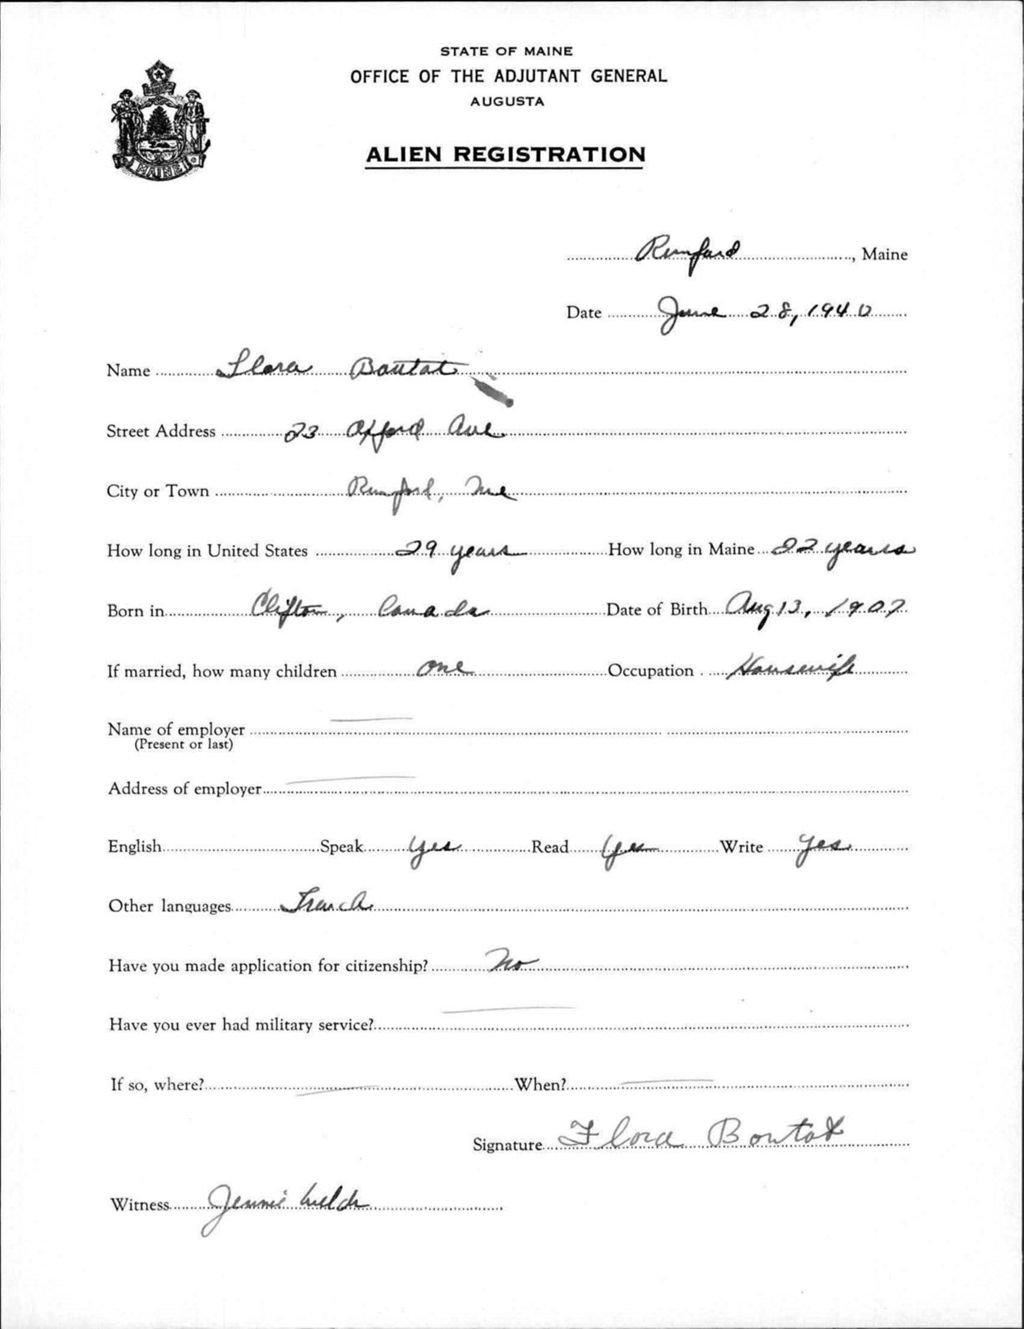 STATE OF MAINE
OFFICE OF THE ADJUTANT GENERAL
AUGUSTA
ALIEN REGISTRATION
MAINE
Rumford, Maine
Date June 28, 1940
Name Flora Boutot
Street Address 23 Oxford Ave
City or Town Rumford, Me
How long in United States 29 years How long in Maine 22 years
Born in Clifton, Canada Date of Birth Aug 13, 1907
If married, how many children one Occupation Housewife
Name of employer
(Present or last)
Address of employer
English Speak yes Read yes Write yes
Other languages French
Have you made application for citizenship? No
Have you ever had military service?
If so, where? When?
Signature Flora Boutot
Witness Jennie Welch